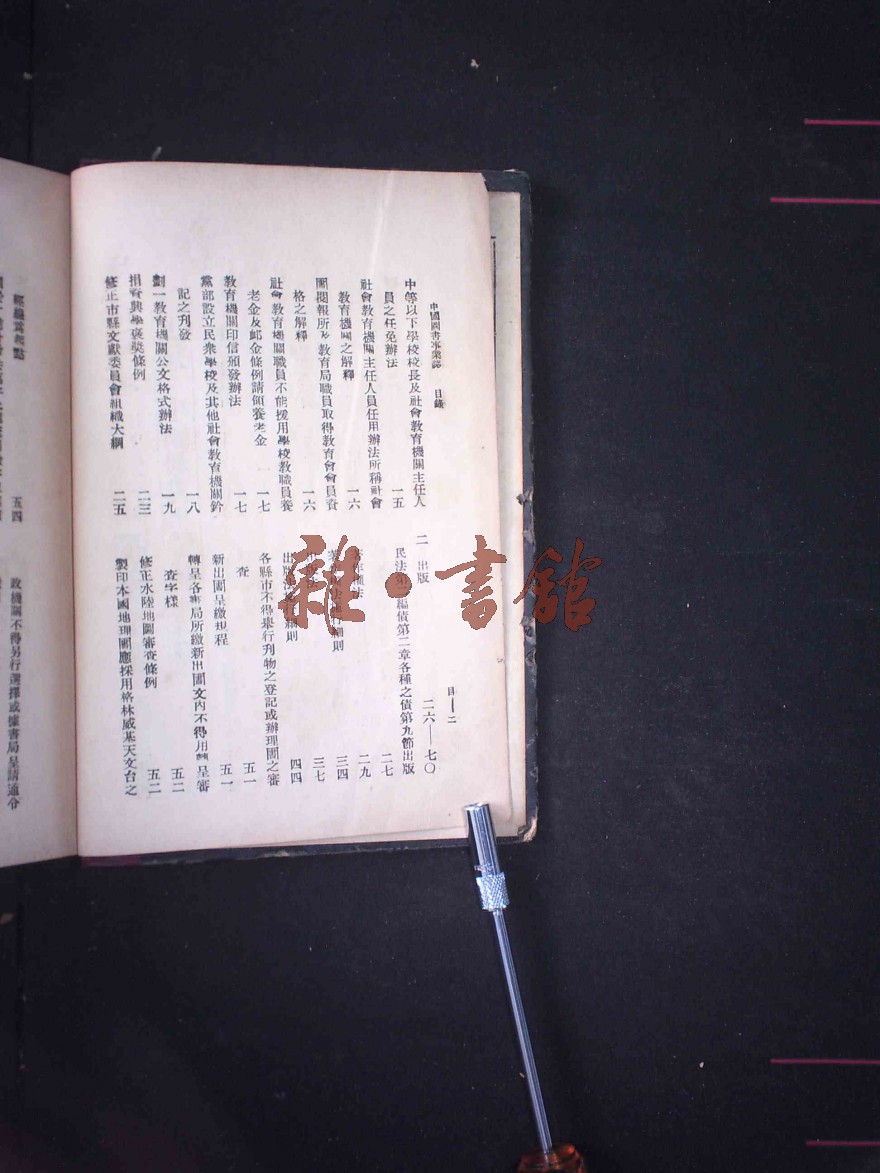 中國圖書事業誌　目錄
目—二
中等以下學校校長及社會教育機關主任人
員之任免辦法　一五
社會教育機關主任人員任用辦法所稱社會
教育機關之解釋　一六
圖閱報所及教育局職員取得教育會會員資
格之解釋　一六
社會教育機關職員不能援用學校教職員養
老金及卹金條例請領養老金　一七
教育機關印信頒發辦法　一七
黨部設立民衆學校及其他社會教育機關鈐
記之刊發　一八
劃一教育機關公文格式辦法　一九
捐資興學褒獎條例　二三
修正市縣文獻委員會組織大綱　二五
二　出版　二六—七〇
民法第二編債第二章各種之債第九節出版　二七
著作權法　二九
著作權法施行細則　三四
出版法　三七
出版法施行細則　四四
各縣市不得舉行刊物之登記或辦理圖之審
查　五一
新出圖呈繳規程　五一
轉呈各書局所繳新出圖文內不得用呈審
查字樣　五二
修正水陸地圖審查條例　五二
製印本國地理圖應採用格林威基天文台之
經線爲起點　五四
政機關不得另行選擇或據書局呈請通令
雜·書館